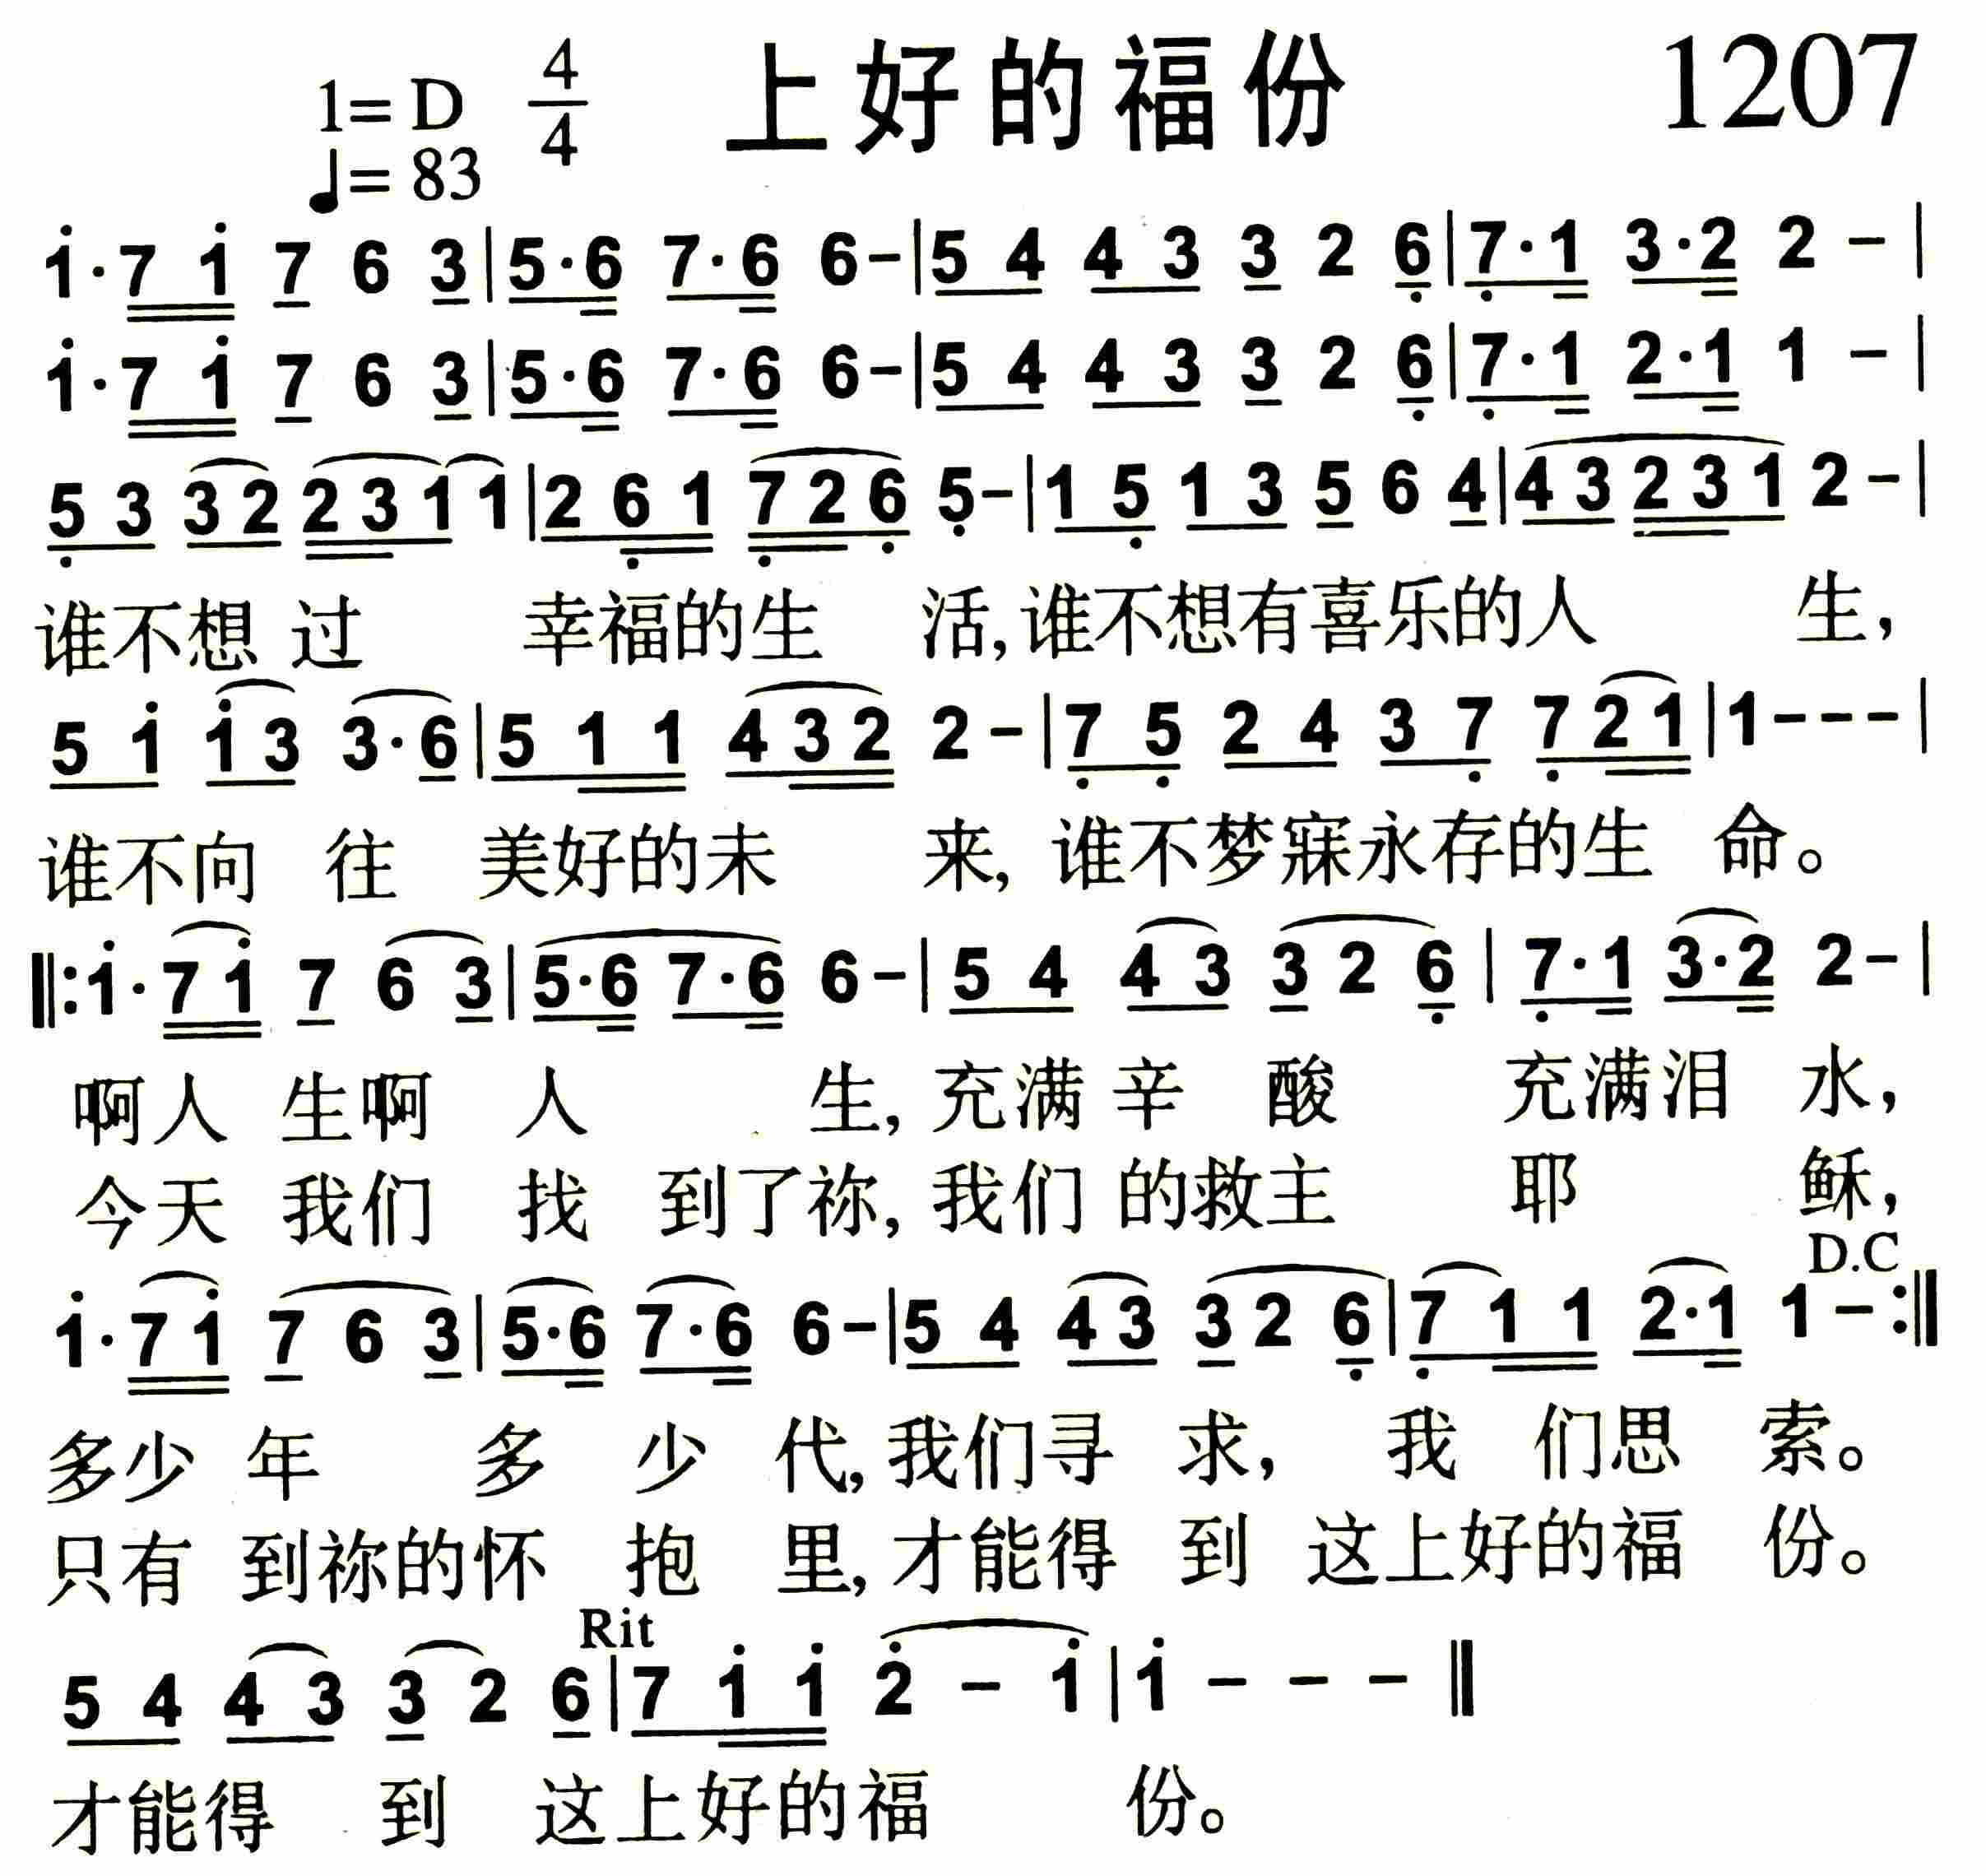 1=D 4/4 上好的福份 1207
♩=83
i·7 i 7 6 3|5·6 7·6 6-|5 4 4 3 3 2 6̣|7̣·1 3·2 2 -|
i·7 i 7 6 3|5·6 7·6 6-|5 4 4 3 3 2 6̣|7̣·1 2·1 1 -|
5̣ 3 3 2 2 3 1 1|2 6̣ 1 7̣ 2 6̣ 5̣-|1 5̣ 1 3 5 6 4|4 3 2 3 1 2-|
谁不想 过 幸福的生 活,谁不想有喜乐的人 生,
5 i i 3 3·6|5 1 1 4 3 2 2-|7̣ 5̣ 2 4 3 7̣ 7̣ 2 1|1---|
谁不向 往 美好的未 来, 谁不梦寐永存的生 命。
‖:i·7 i 7 6 3|5·6 7·6 6-|5 4 4 3 3 2 6̣|7̣·1 3·2 2-|
啊人 生啊 人 生, 充满 辛 酸 充满泪 水,
今天 我们 找 到了祢, 我们 的救主 耶 稣,
D.C
i·7 i 7 6 3|5·6 7·6 6-|5 4 4 3 3 2 6̣|7̣ 1 1 2·1 1-:‖
多少 年 多 少 代,我们寻 求, 我 们思 索。
只有 到祢的怀 抱 里,才能得 到 这上好的福 份。
Rit
5 4 4 3 3 2 6|7 i i 2̇ - i|i - - - ‖
才能得 到 这上好的福 份。